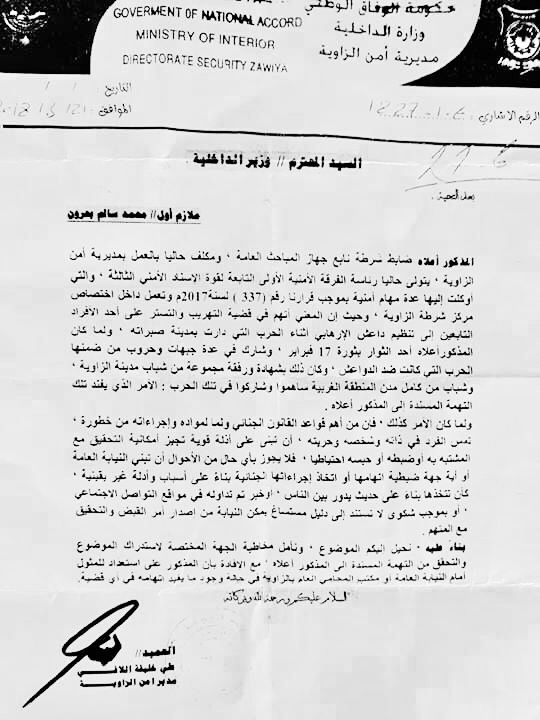 حكومة الوفاق الوطني
GOVERMENT OF NATIONAL ACCORD
وزارة الداخلية
MINISTRY OF INTERIOR
مديرية أمن الزاوية
DIRECTORATE SECURITY ZAWIYA
التاريخ
الموافق
الرقم الاشاري
السيد المحترم // وزير الداخلية .
بعد التحية
ملازم أول // محمد سالم بحرون
المذكور أعلاه ضابط شرطة تابع جهاز المباحث العامة ، ومكلف حاليا بالعمل بمديرية أمن
الزاوية ، يتولى حاليا رئاسة الفرقة الأمنية الأولى التابعة لقوة الاسناد الأمني الثالثة ، والتي
أوكلت إليها عدة مهام أمنية بموجب قرارنا رقم (337 ) لسنة2017م وتعمل داخل اختصاص
مركز شرطة الزاوية ، وحيث إن المعني أتهم في قضية التهريب والتستر على أحد الافراد
التابعين الى تنظيم داعش الإرهابي أثناء الحرب التي دارت بمدينة صبراته ، ولما كان
المذكورأعلاه أحد الثوار بثورة 17 فبراير ، وشارك في عدة جبهات وحروب من ضمنها
الحرب التي كانت ضد الدواعش ، وكان ذلك بشهادة ورفقة مجموعة من شباب مدينة الزاوية ،
وشباب من كامل مدن المنطقة الغربية ساهموا وشاركوا في تلك الحرب : الامر الذي يفند تلك
التهمة المسندة الى المذكور أعلاه .
ولما كان الامر كذلك ، فان من أهم قواعد القانون الجنائي ولما لمواده وإجراءاته من خطورة ،
تمس الفرد في ذاته وشخصه وحريته ، أن تبنى على أدلة قوية تجيز أمكانية التحقيق مع
المشتبه به أوضبطه أو حبسه احتياطيا ، فلا يجوز بأي حال من الأحوال أن تبني النيابة العامة
أو أية جهة ضبطية اتهامها أو اتخاذ إجراءاتها الجنائية بناءً على أسباب وأدلة غير يقينية ،
كأن تتخذها بناءً على حديث يدور بين الناس ، اوخبر تم تداوله في مواقع التواصل الاجتماعي
، أو بموجب شكوى لا تستند إلى دليل مستساغ يمكن النيابة من اصدار أمر القبض والتحقيق
مع المتهم .
بناءً عليه : نحيل اليكم الموضوع ، ونأمل مخاطبة الجهة المختصة لاستدراك الموضوع
والتحقق من التهمة المسندة الى المذكور أعلاه ، مع الافادة بإن المذكور على استعداد للمثول
أمام النيابة العامة أو مكتب المحامي العام بالزاوية في حالة وجود ما يفيد اتهامه في أي قضية.
السلام عليكم ورحمة الله وبركاته
العميد //
علي خليفة اللافي
مدير أمن الزاوية